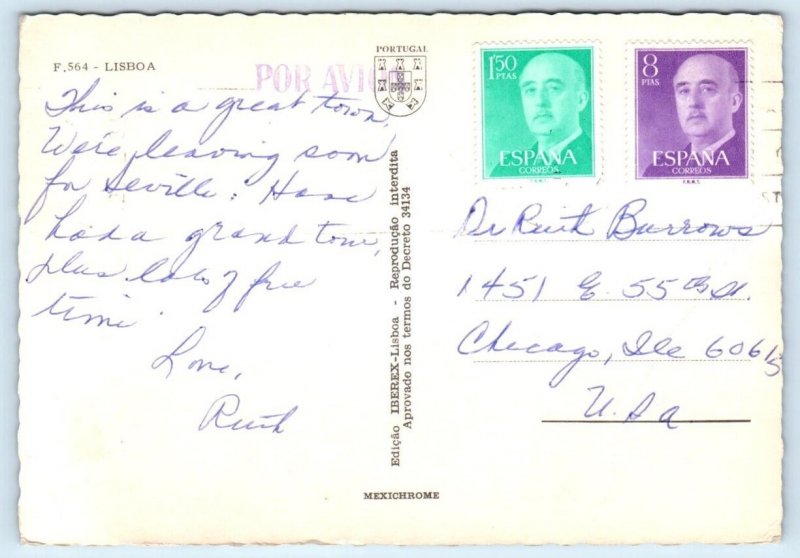 F.564 - LISBOA
POR AVIO
PORTUGAL
This is a great town.
We're leaving soon
for Seville. Have
had a grand tour,
plus lots of free
time.
Love,
Ruth
Edição IBEREX-Lisboa - Reprodução interdita
Aprovado nos termos do Decreto 34134
MEXICHROME
1'50
PTAS
ESPAÑA
CORREOS
F.N.M.T.
8
PTAS
ESPAÑA
CORREOS
F.N.M.T.
Dr Ruth Burrows
1451 E. 55th St.
Chicago, Ill 60615
U.S.A